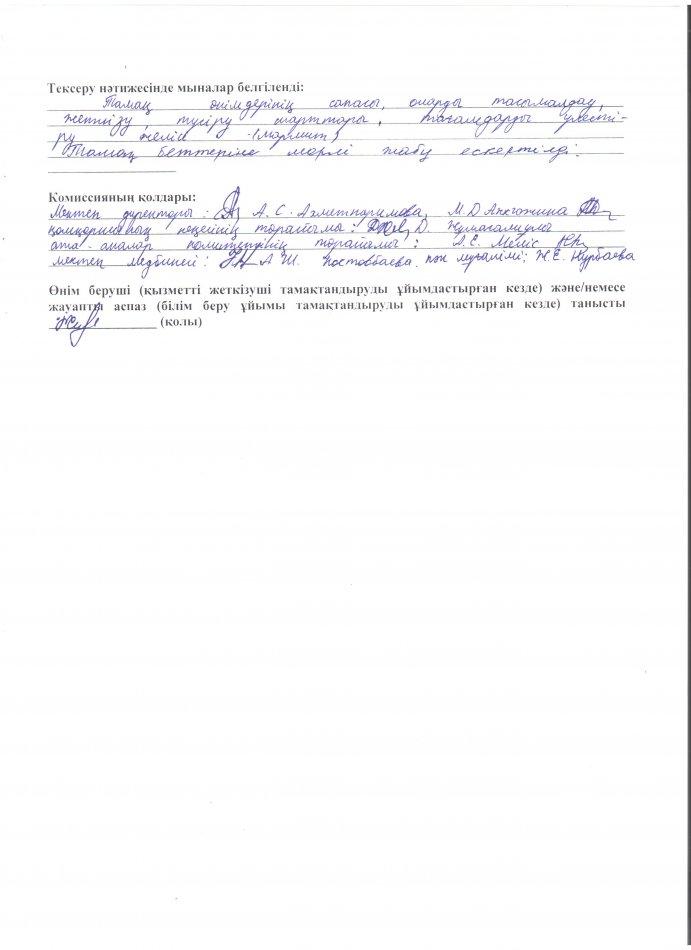 Тексеру нәтижесінде мыналар белгіленді:
Тамақ өнімдерінің сапасы, оларды тасымалдау,
жеткізу түсіру шарттары, тағамдарды үлесті-
ру желісі (мармит)
Тамақ беттеріне марлі жабу ескертілді.
Комиссияның қолдары:
Мектеп директоры: А. С. Ахметкаримова, М. Д
қамқоршылық кеңесінің төрайымы: Д.
ата-аналар комитетінің төрайымы: А. Е. Меліс
мектеп медбикесі: А Ш. пән мұғалімі: Ж. Е. Нурбаева
Өнім беруші (қызметті жеткізуші тамақтандыруды ұйымдастырған кезде) және/немесе
жауапты аспаз (білім беру ұйымы тамақтандыруды ұйымдастырған кезде) танысты
(қолы)